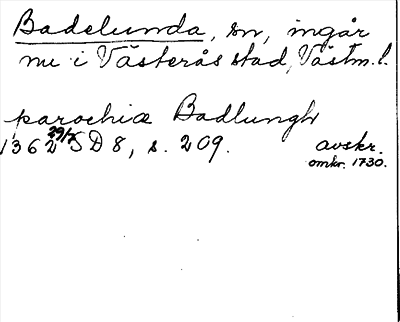 Badelunda, sn, ingår
nu i Västerås stad, Västm. l.
parochia Badlungh
1362 29/7 SD 8, s. 209. avskr.
omkr. 1730.